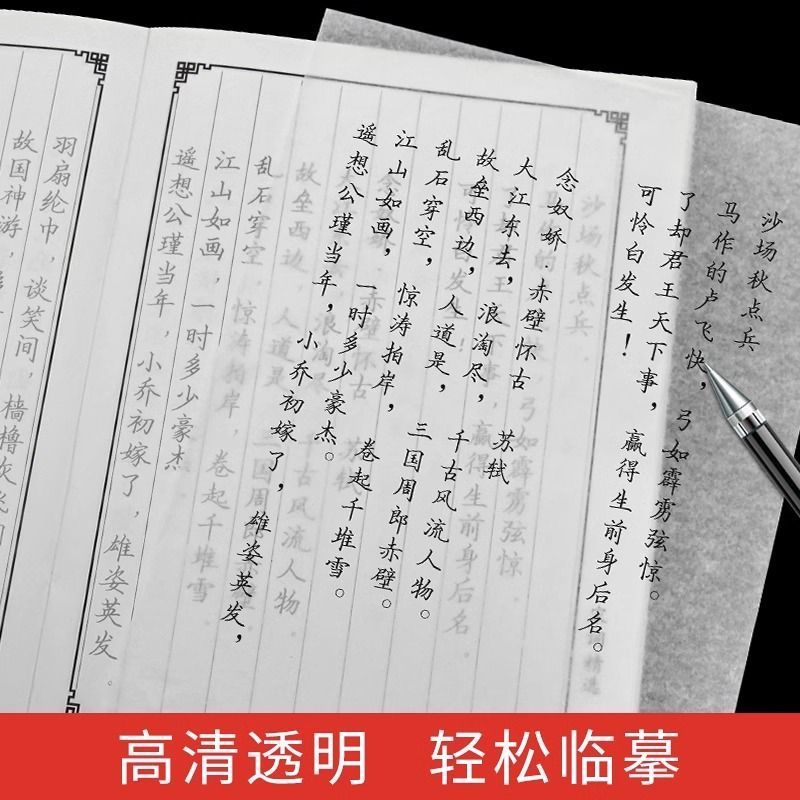 沙场秋点兵
马作的卢飞快，弓如霹雳弦惊。
了却君王天下事，赢得生前身后名。
可怜白发生！
念奴娇·赤壁怀古 苏轼
大江东去，浪淘尽，千古风流人物。
故垒西边，人道是，三国周郎赤壁。
乱石穿空，惊涛拍岸，卷起千堆雪。
江山如画，一时多少豪杰。
遥想公瑾当年，小乔初嫁了，雄姿英发，
沙场秋点兵
故垒西边 人道是 三国周郎赤壁
乱石穿空，惊涛拍岸，卷起千堆雪
江山如画，一时多少豪杰
遥想公瑾当年，小乔初嫁了，雄姿英发。
羽扇纶巾，谈笑间，樯橹灰飞
故国神游，
高清透明 轻松临摹